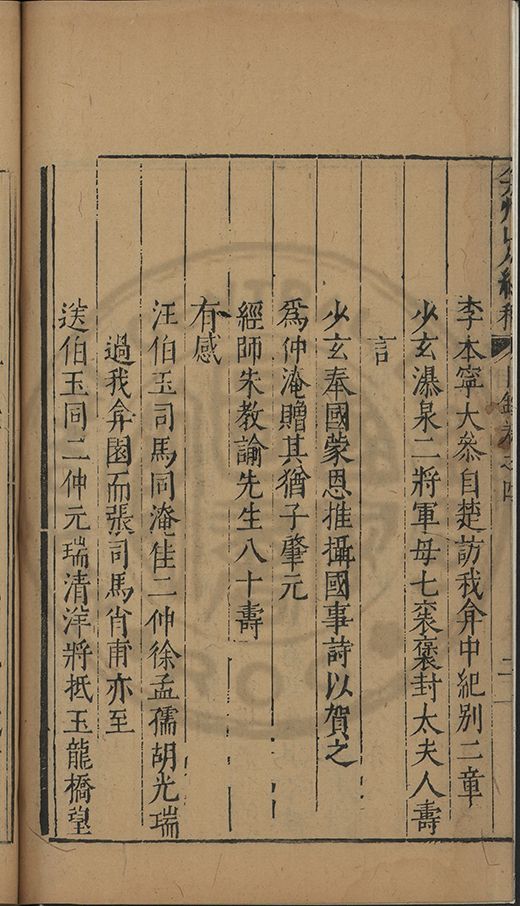 弇州山人續稿 目錄卷之四 二
李本寧大叅自楚訪我弇中紀別二章
少玄瀑泉二將軍母七袠褒封太夫人壽
言
少玄奉國蒙恩推攝國事詩以賀之
爲仲淹贈其猶子肇元
經師朱教諭先生八十壽
有感
汪伯玉司馬同淹佳二仲徐孟孺胡光瑞
過我弇園而張司馬肖甫亦至
送伯玉同二仲元瑞清洋將抵玉龍橋望